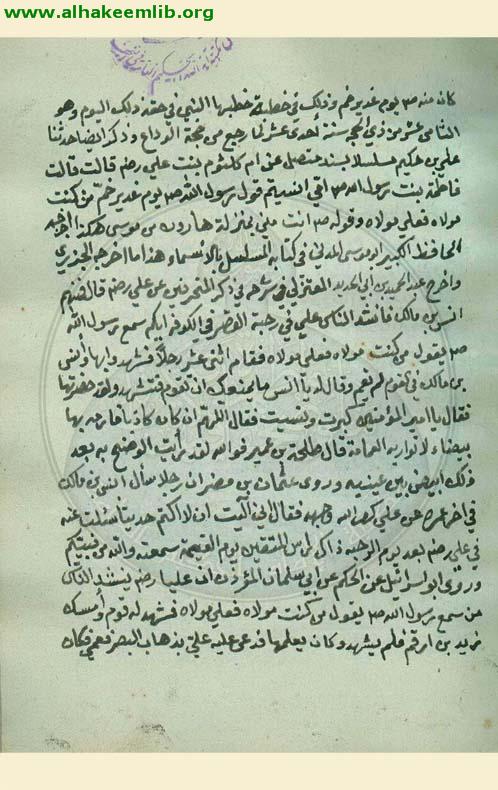 www.alhakeemlib.org
كان منه ص يوم غدير خم وذلك في خطبة خطبها النبي في حقه ذلك اليوم وهو
الثامن عشر من ذي الحجه سنة أحدى عشر لما رجع من حجة الوداع وذكر ايضا حدثنا
علي بن حكيم مسلسلا بسند متصل عن ام كلثوم بنت علي رضه قالت قالت
فاطمة بنت رسول الله ص انسيتم قول رسول الله ص يوم غدير خم من كنت
مولاه فعلي مولاه وقوله ص انت مني بمنزلة هارون من موسى هكذا اخرجه
الحافظ الكبير ابو موسى المديني في كتابه المسلسل بالأسماء هذا ما اخرجه الجزري
واخرج عبد الحميد بن أبي الحديد المعتزلي في شرحه في ذكر المنحرفين عن علي رضه قال فمنهم
انس بن مالك فانشد الناس علي في رحبة القصر في الكوفه ايكم سمع رسول الله
ص يقول من كنت مولاه فعلي مولاه فقام اثنى عشر رجلا فشهدوا بها وأنس
بن مالك في القوم لم يقم وقال له يا انس ما يمنعك ان تقوم فتشهد ولقد حضرتها
فقال يا امير المؤمنين كبرت ونسيت فقال اللهم ان كان كاذبا فارمه بها
بيضاء لا تواريه العمامة قال طلحة بن عمير فوالله لقد رأيت الوضح به بعد
ذلك ابيض بين عينيه وروى عثمان بن مضران رجلا سأل انس بن مالك
في اخر عمره عن علي كرم الله وجهه فقال اني آليت ان لا اكتم حديثا سئلت عنه
في علي رضه بعد يوم الرحبه ذاك رأس المتقين يوم القيمة سمعته والله من نبيكم
وروى ابو اسرائيل عن الحكم عن أبي سلمان المؤذن ان عليا رضه نشد الناس
من سمع رسول الله ص يقول من كنت مولاه فعلي مولاه فشهد له قوم وأمسك
زيد بن ارقم فلم يشهد وكان يعلمها فدعى عليه علي بذهاب البصر فعمي فكان